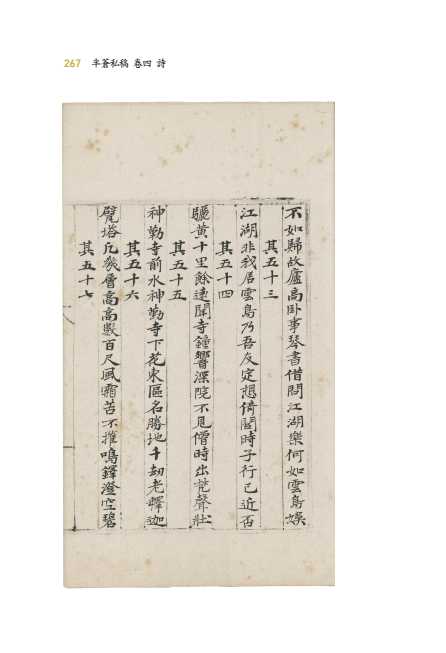 267 半蒼私稿 卷四 詩
不如歸故廬高卧事琴書借問江湖樂何如雲鳥娛
其五十三
江湖非我居雲鳥乃吾友定想倚閣時予行已近否
其五十四
驪黄十里餘遠聞寺鐘響深院不見僧時出梵聲壯
其五十五
神勤寺前水神勤寺下花東區名勝地千劫老釋迦
其五十六
甓塔凡幾層高高數百尺風霜苦不摧鳴鐸澄空碧
其五十七